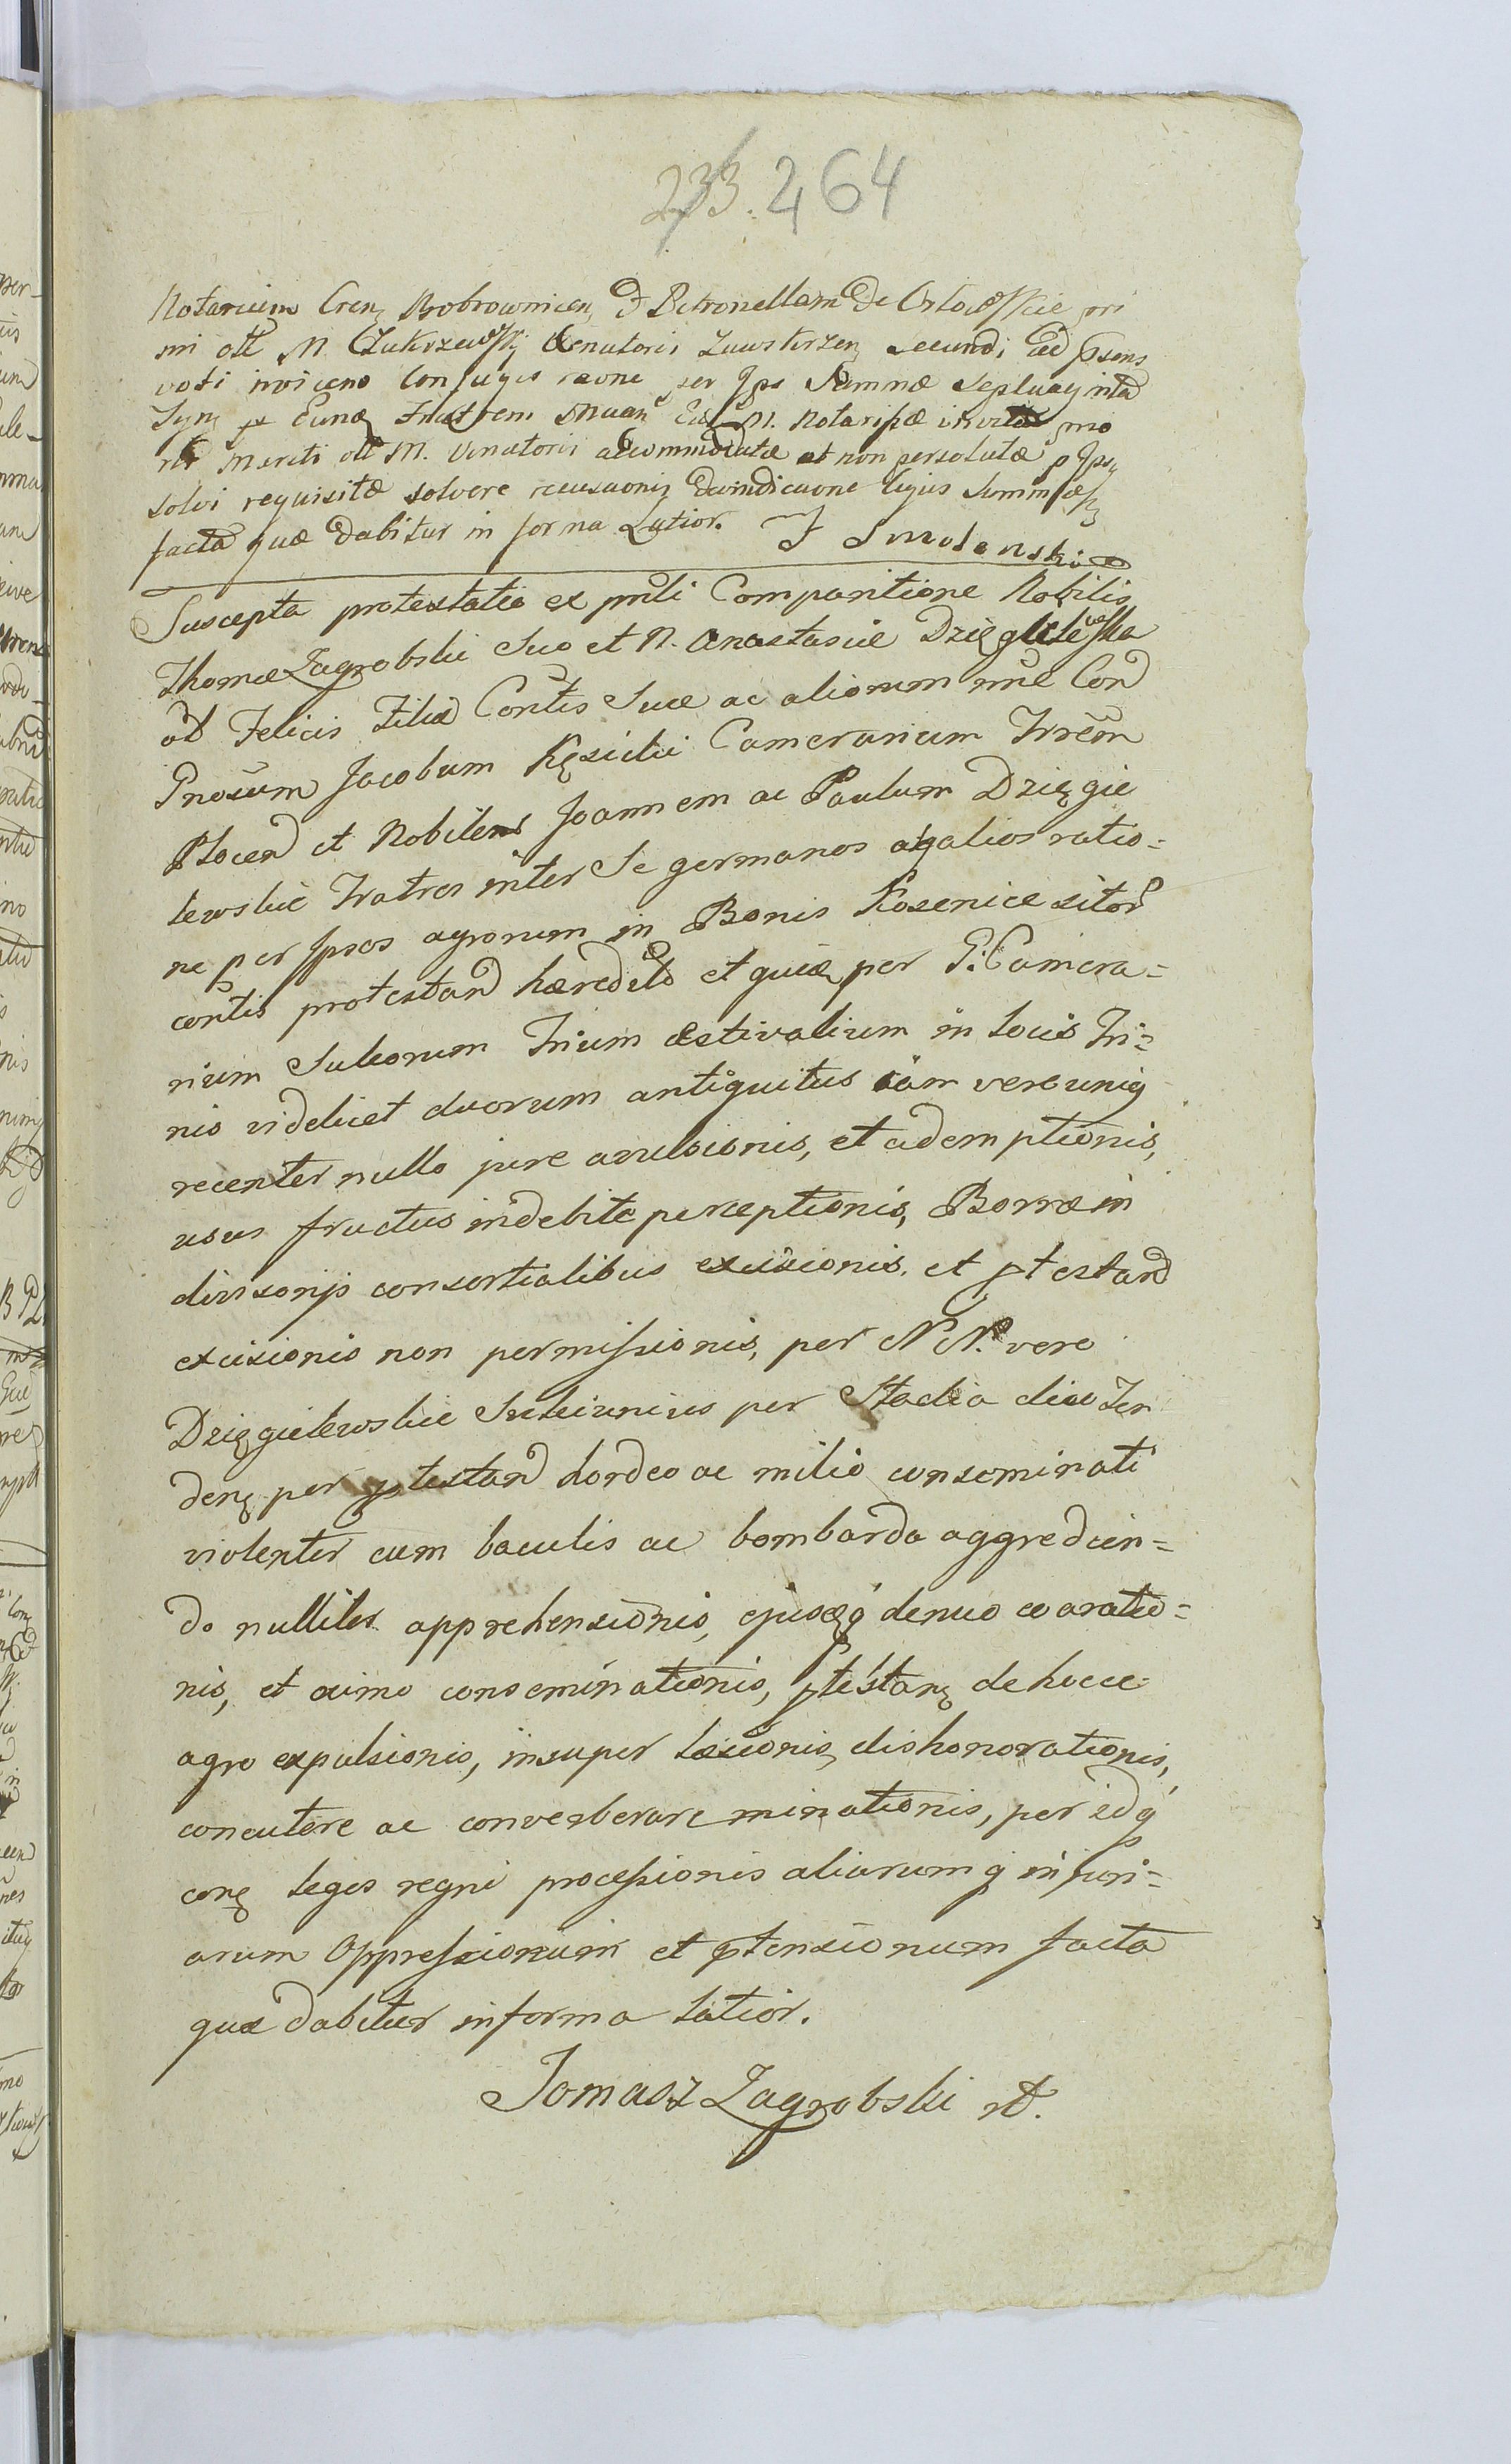 233. 264
Notarium Cren, Bobrownicen, & Petronellam de Orłowskie pri
mi olt M. Zakrzewskj Venatoris Zawskrzen, secundi ad psens
voti invicem Conjuges raone per Ips Summæ Septuaginta
Tyn,
rtr Mariti olt M. Venatoris accommodatæ et non persolutæ p Ips,
solvi requisitæ solvere recusaonis, deindicaone ligius Summæ
facta quæ dabitur in forma Latior. J Smolenski
Suscepta protestatio ex pnti Comparitione Nobilis
Thomæ Zagrobski Suo et N. Anastasiæ Dzięgielewska
olt Felicis Filiæ Contis Suæ ac aliorum nne Cond
Gnosum Jacobum Kęsicki Camerarium Trrem
Plocen et Nobiles Joannem ac Paulum Dzięgie
lewskie Fratres inter Se germanos aqalios ratio=
ne per Ipsos agrorum in Bonis Kosenice sitor
contis protestand hæredit et quiæ per G. Camera=
rium Sulcorum Trium æstivalium in locis Tri=
nis videlicet duorum antiquitus iam vero uniq
recenter nullo jure avulsionis, et ademptionis,
usus fructus indebite perceptionis, Borræ in
divisorijs consortialibus excisionis. et ptestand
excisionis non permissionis, per N. N. vero
Dzięgielewskie Sulci unius per Stadia duo Ten
denę per ptestand hordeo ac milio conseminati
violenter cum baculis ac bombarda aggredien=
do nulliter apprehensionis, ejusq denuo exaratio=
nis, et ximo conseminationis, ptestanę de hocce
agro expulsionis, insuper læsionis, dishonorationis,
concutere ac converberare minationis, per idq
conę leges regni processionis aliarumq injuri=
arum Oppressionum et ptensionum facta
quæ dabitur in forma latior.
Tomasz Zagrobski